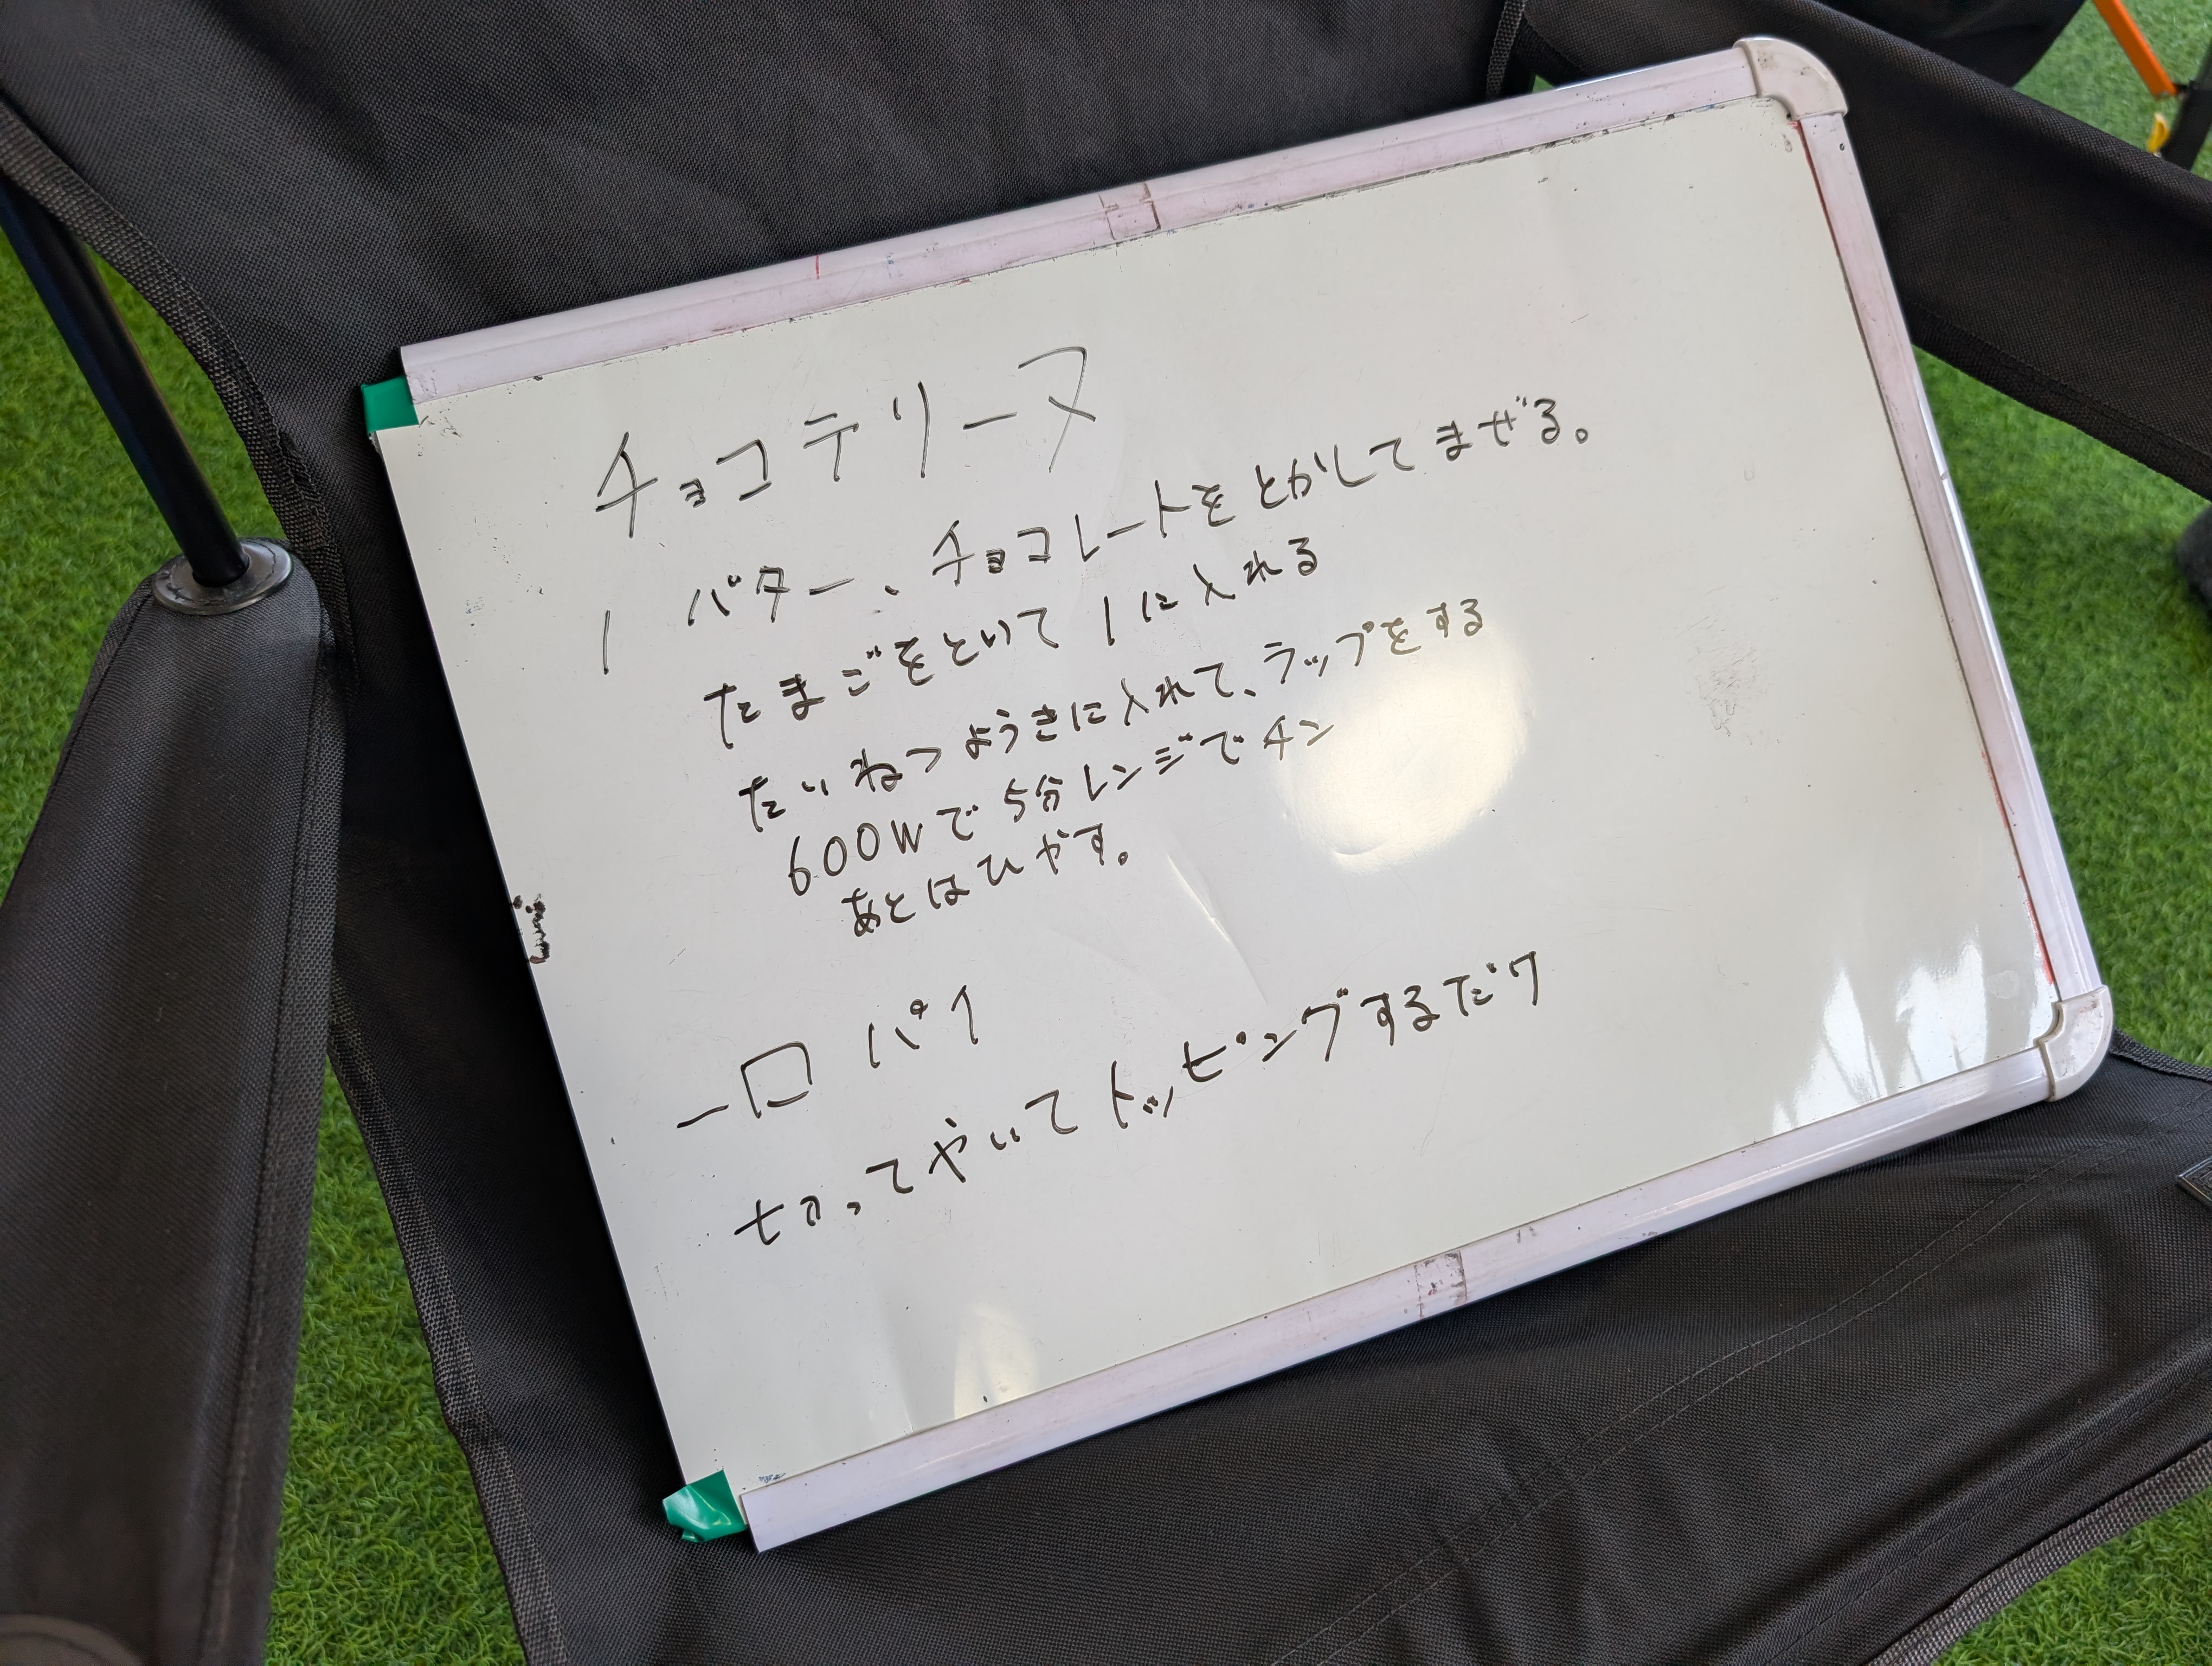 チョコテリーヌ
1 バター、チョコレートをとかしてまぜる。
たまごをといて1に入れる
たいねつようきに入れて、ラップをする
600Wで5分レンジでチン
あとはひやす。
一口パイ
切ってやいてトッピングするだけ